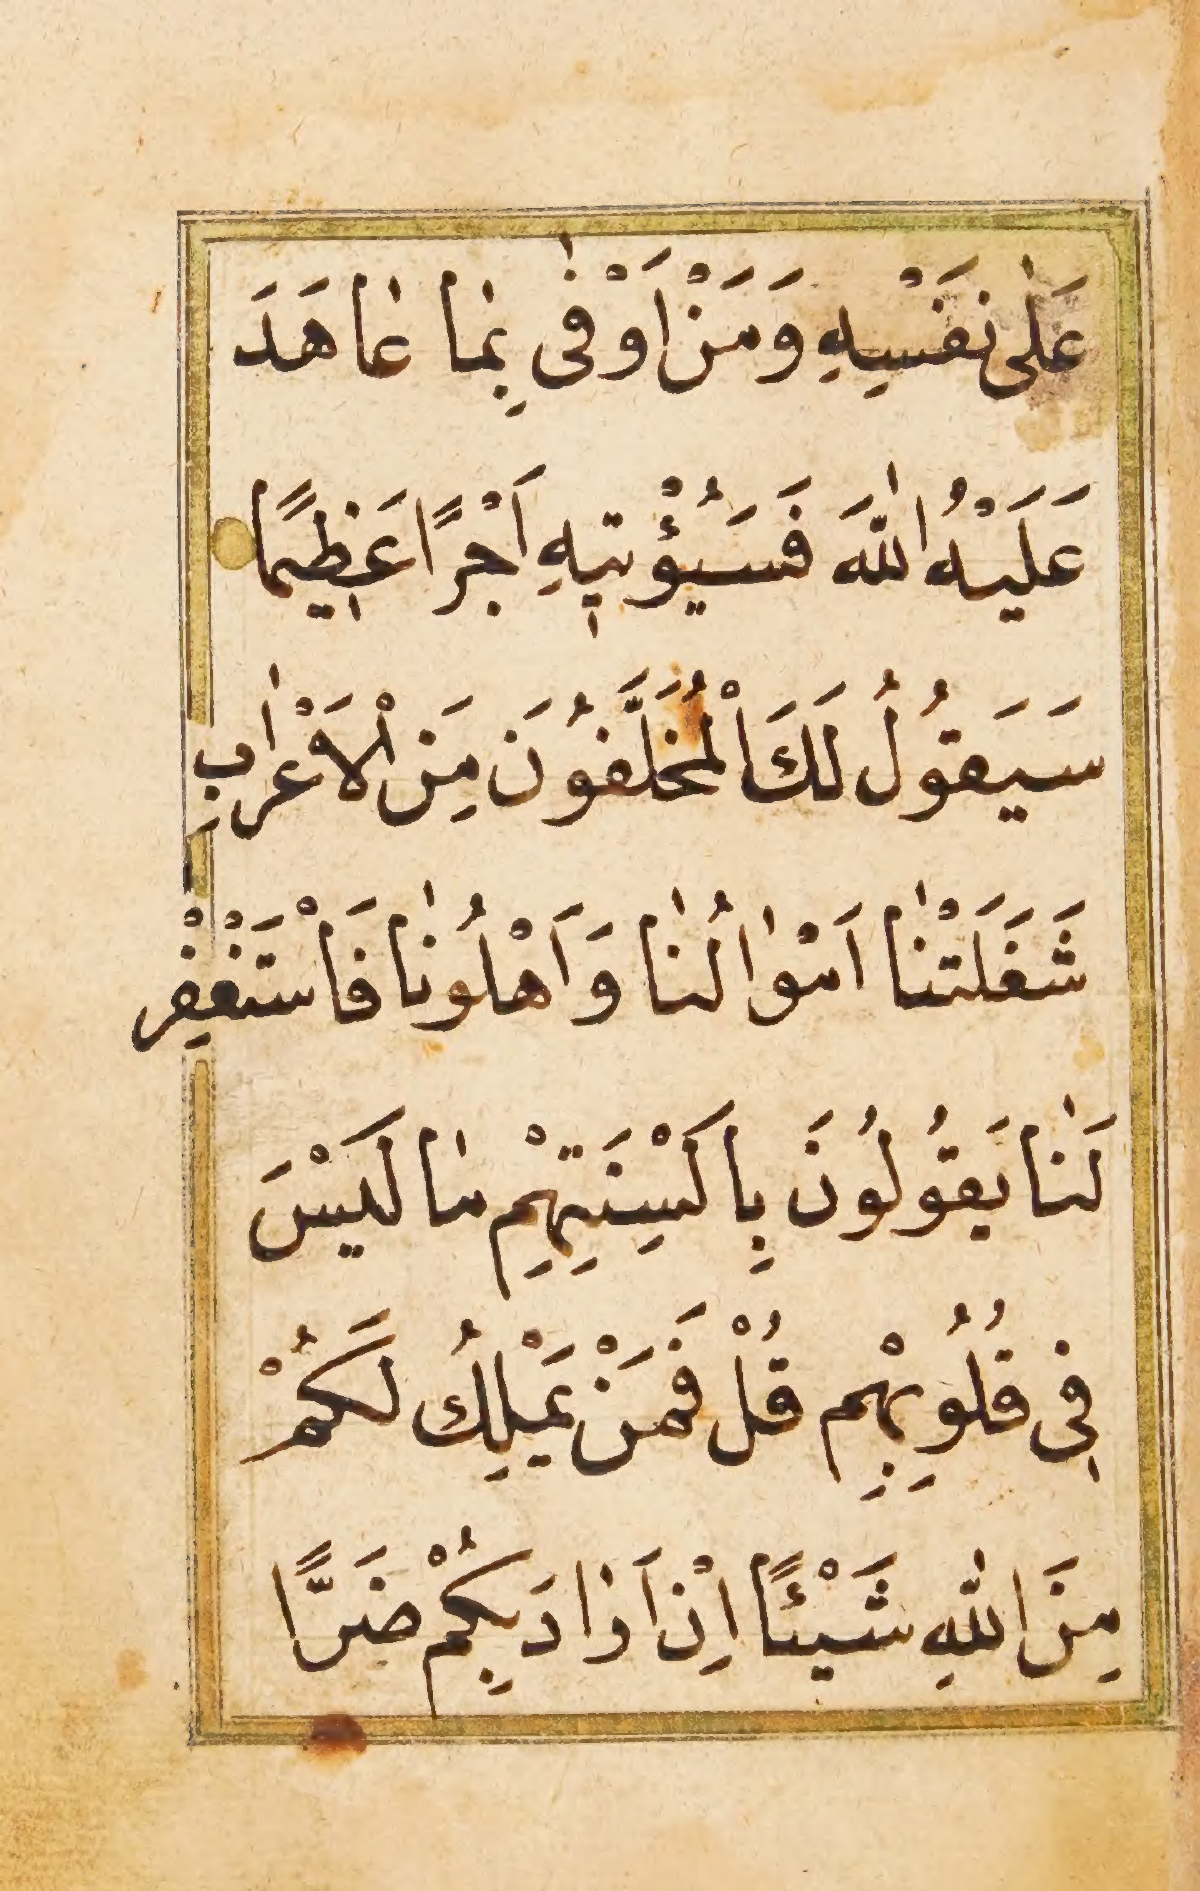 عَلٰى نَفْسِهِ وَمَنْ اَوْفٰى بِمٰا عٰاهَدَ
عَلَيْهُ اللّٰهَ فَسَيُؤْتٖيهِ اَجْرًا عَظٖيمًا
سَيَقُولُ لَكَ الْمُخَلَّفُونَ مِنَ الْاَعْرٰابِ
شَغَلَتْنٰا اَمْوٰالُنٰا وَاَهْلُونٰا فَاْسْتَغْفِرْ
لَنٰا يَقُولُونَ بِاَلْسِنَتِهِمْ مٰا لَيْسَ
فٖى قُلُوبِهِمْ قُلْ فَمَنْ يَمْلِكُ لَكُمْ
مِنَ اللّٰهِ شَيْئًا اِنْ اَرٰادَ بِكُمْ ضَرًّا